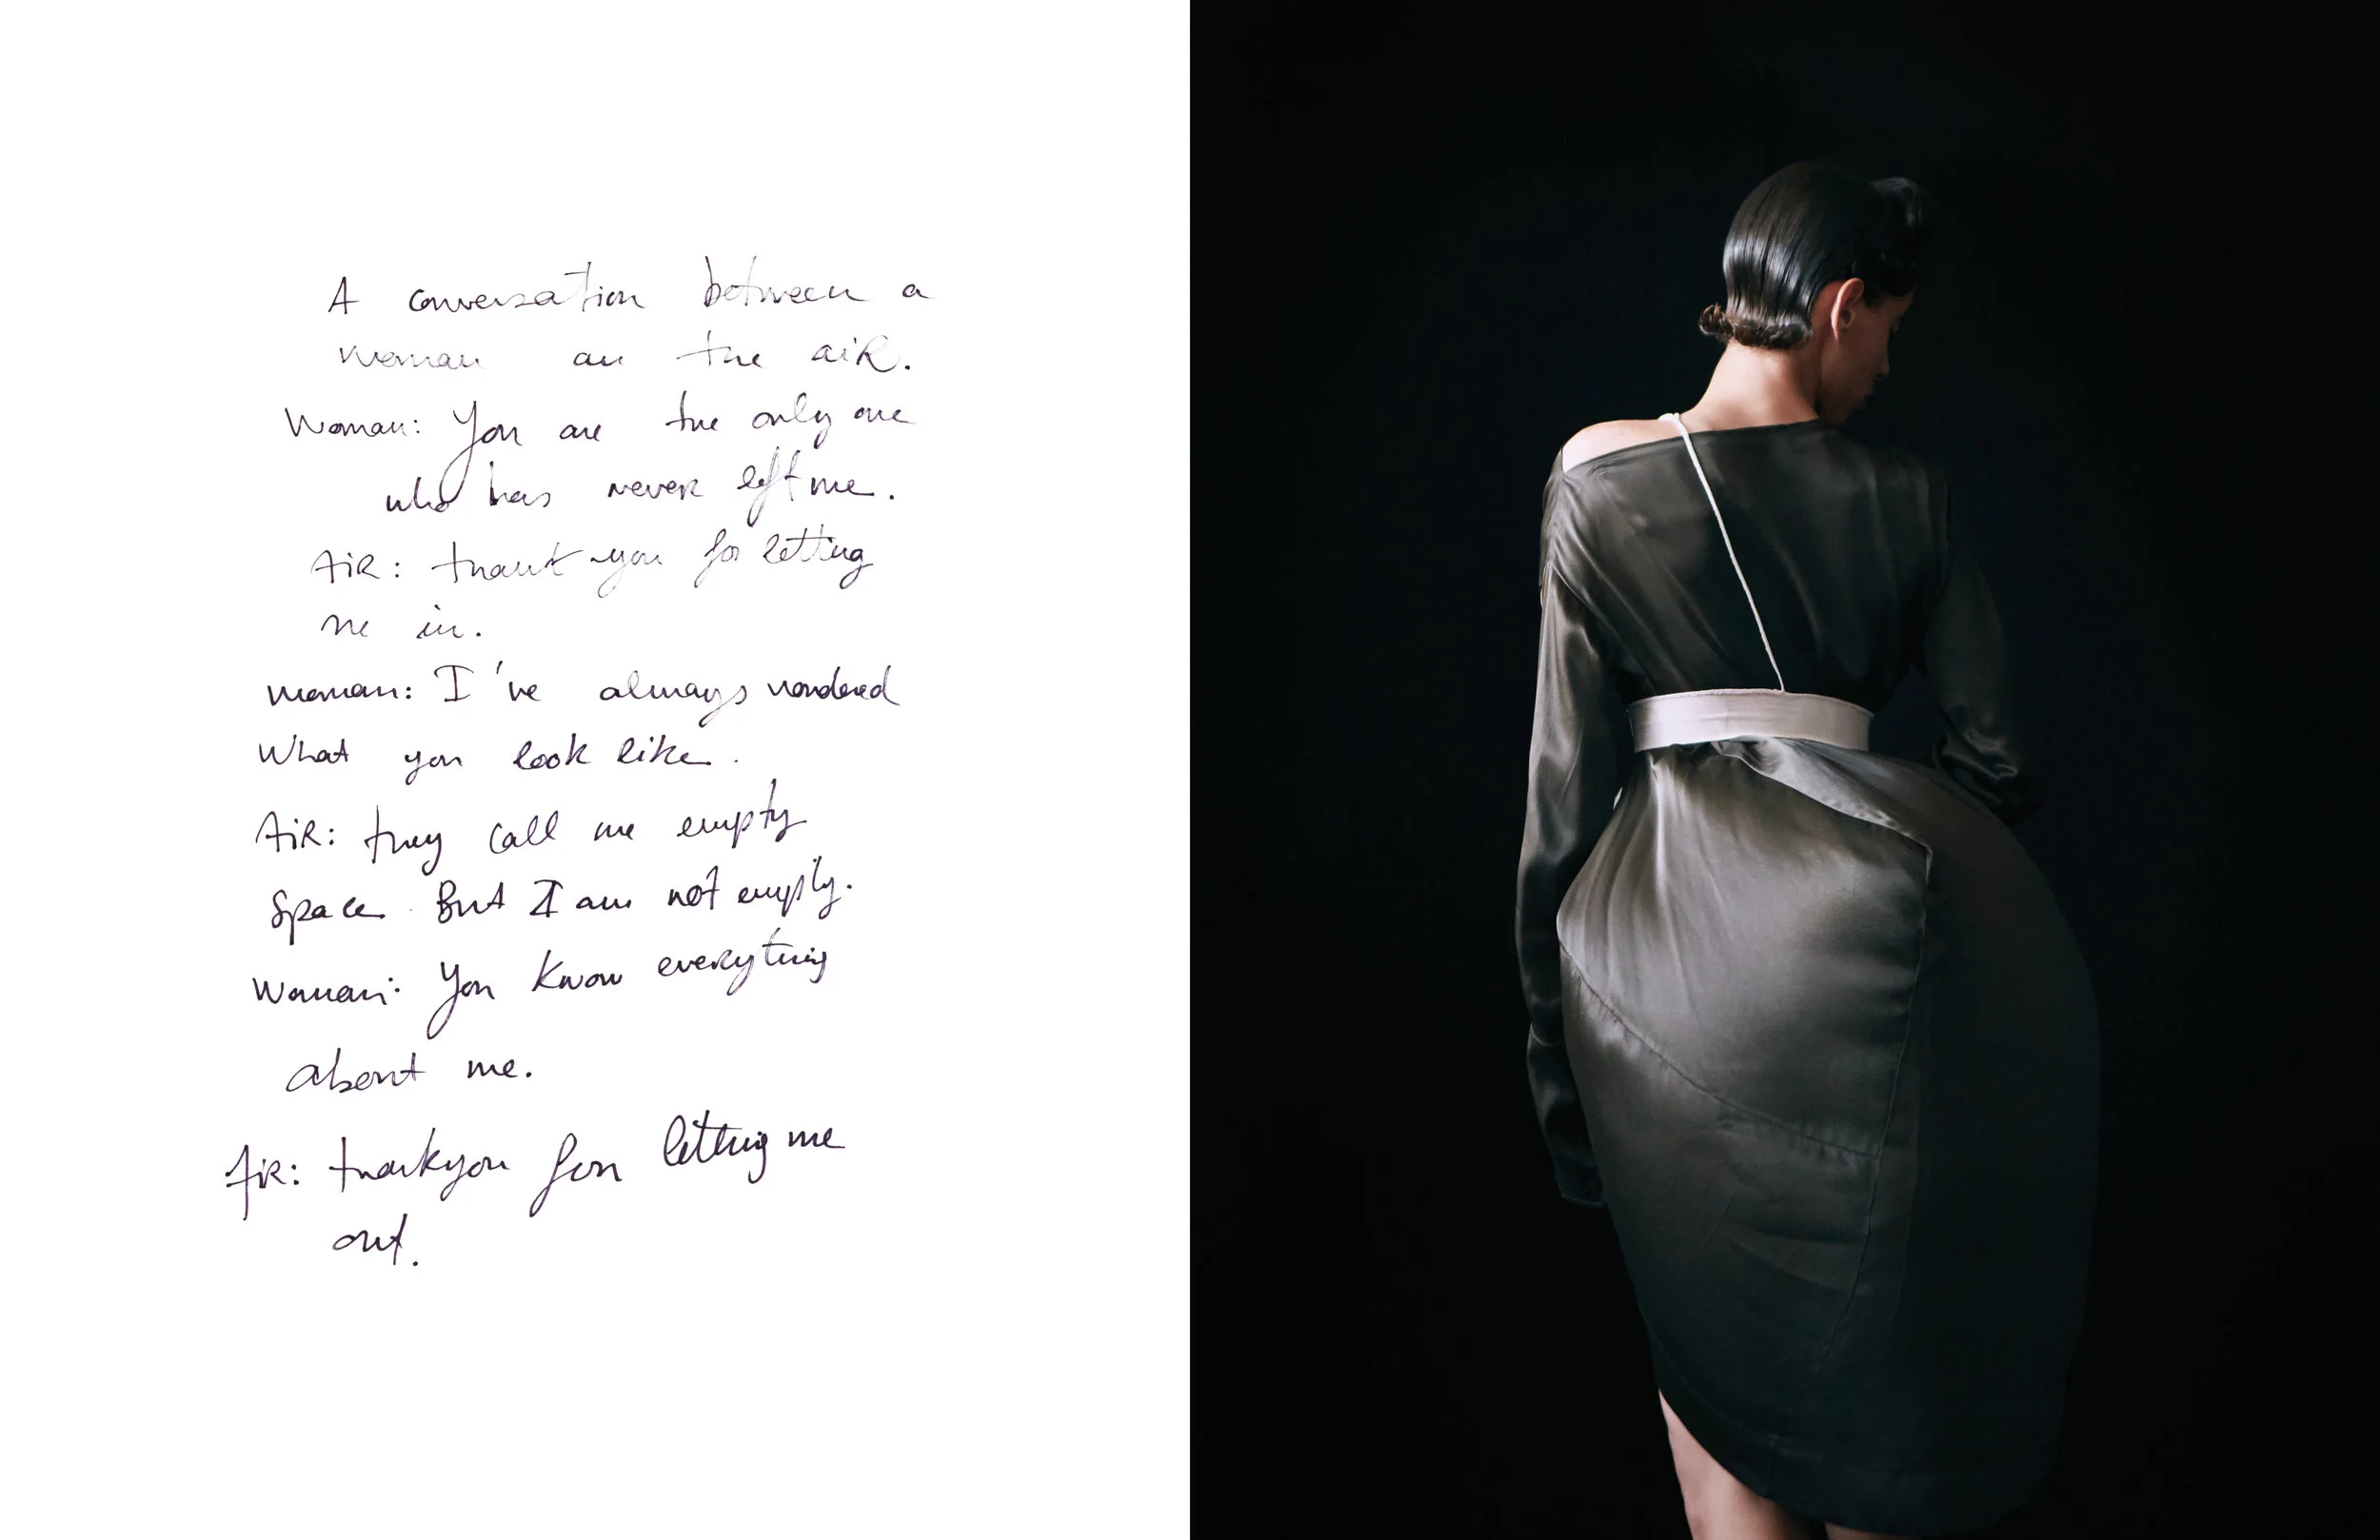 A conversation between a
woman an the aiR.
Woman: You are the only one
who has never left me.
AiR: thank you for letting
me in.
woman: I've always wondered
What you look like.
AiR: they call me empty
Space. But I am not empty.
Woman: You know everything
about me.
AiR: thankyou for letting me
out.